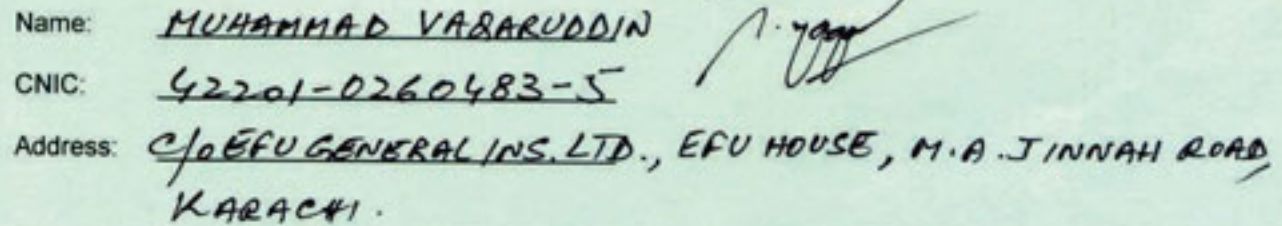 Name: MUHAMMAD VAQARUDDIN
CNIC: 42201-0260483-5
Address: C/o EFU GENERAL INS. LTD., EFU HOUSE, M.A. JINNAH ROAD,
KARACHI.